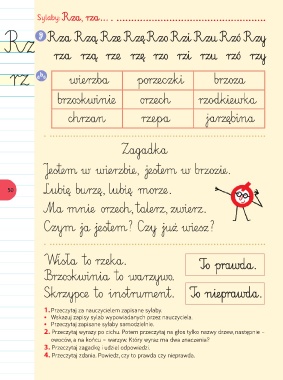 Sylaby Rza, rza...
Rz
Rza Rzą Rze Rzę Rzo Rzi Rzu Rzó Rzy
rza rzą rze rzę rzo rzi rzu rzó rzy
rz
wierzba porzeczki brzoza
brzoskwinie orzech rzodkiewka
chrzan rzepa jarzębina
Zagadka
Jestem w wierzbie, jestem w brzozie.
Lubię burzę, lubię morze.
Ma mnie orzech, talerz, zwierz.
Czym ja jestem? Czy już wiesz?
50
Wisła to rzeka.
Brzoskwinia to warzywo.
Skrzypce to instrument.
To prawda.
To nieprawda.
1. Przeczytaj za nauczycielem zapisane sylaby.
• Wskazuj zapisy sylab wypowiadanych przez nauczyciela.
• Przeczytaj zapisane sylaby samodzielnie.
2. Przeczytaj wyrazy po cichu. Potem przeczytaj na głos tylko nazwy drzew, następnie -
owoców, a na końcu - warzyw. Który wyraz ma dwa znaczenia?
3. Przeczytaj zagadkę i udziel odpowiedzi.
4. Przeczytaj zdania. Powiedz, czy to prawda czy nieprawda.